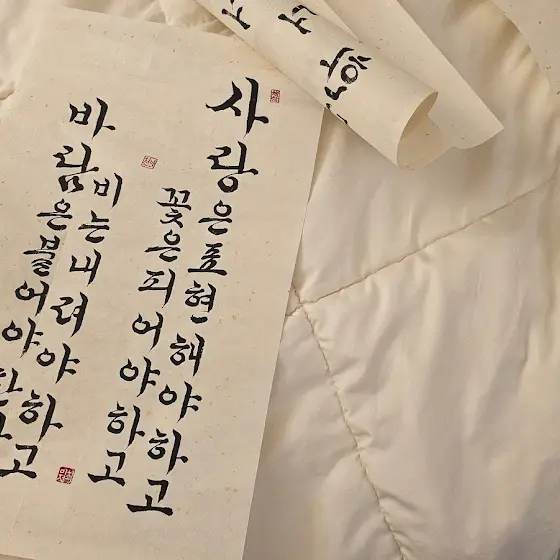 사랑은표현해야하고
꽃은피어야하고
비는내려야하고
바람은불어야한